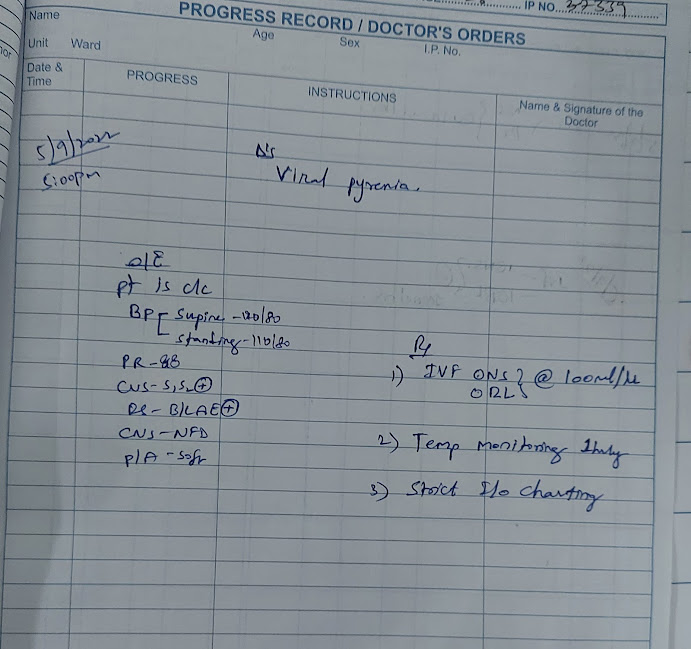 IP NO. 37339
PROGRESS RECORD / DOCTOR'S ORDERS
Name
Age
Sex
I.P. No.
Unit Ward
Date & Time
PROGRESS
INSTRUCTIONS
Name & Signature of the Doctor
5/9/2022
5:00pm
Δ's
Viral pyrenia.
O/E
pt is c/c
BP [ Supine - 120/80
Standing - 110/80
PR - 88
CVS - S1S2 (+)
RS - B/L AE (+)
CNS - NFD
P/A - Soft
Rx
1) IVF ONS } @ 100ml/hr
ORL }
2) Temp monitoring 1hrly
3) Strict I/o charting